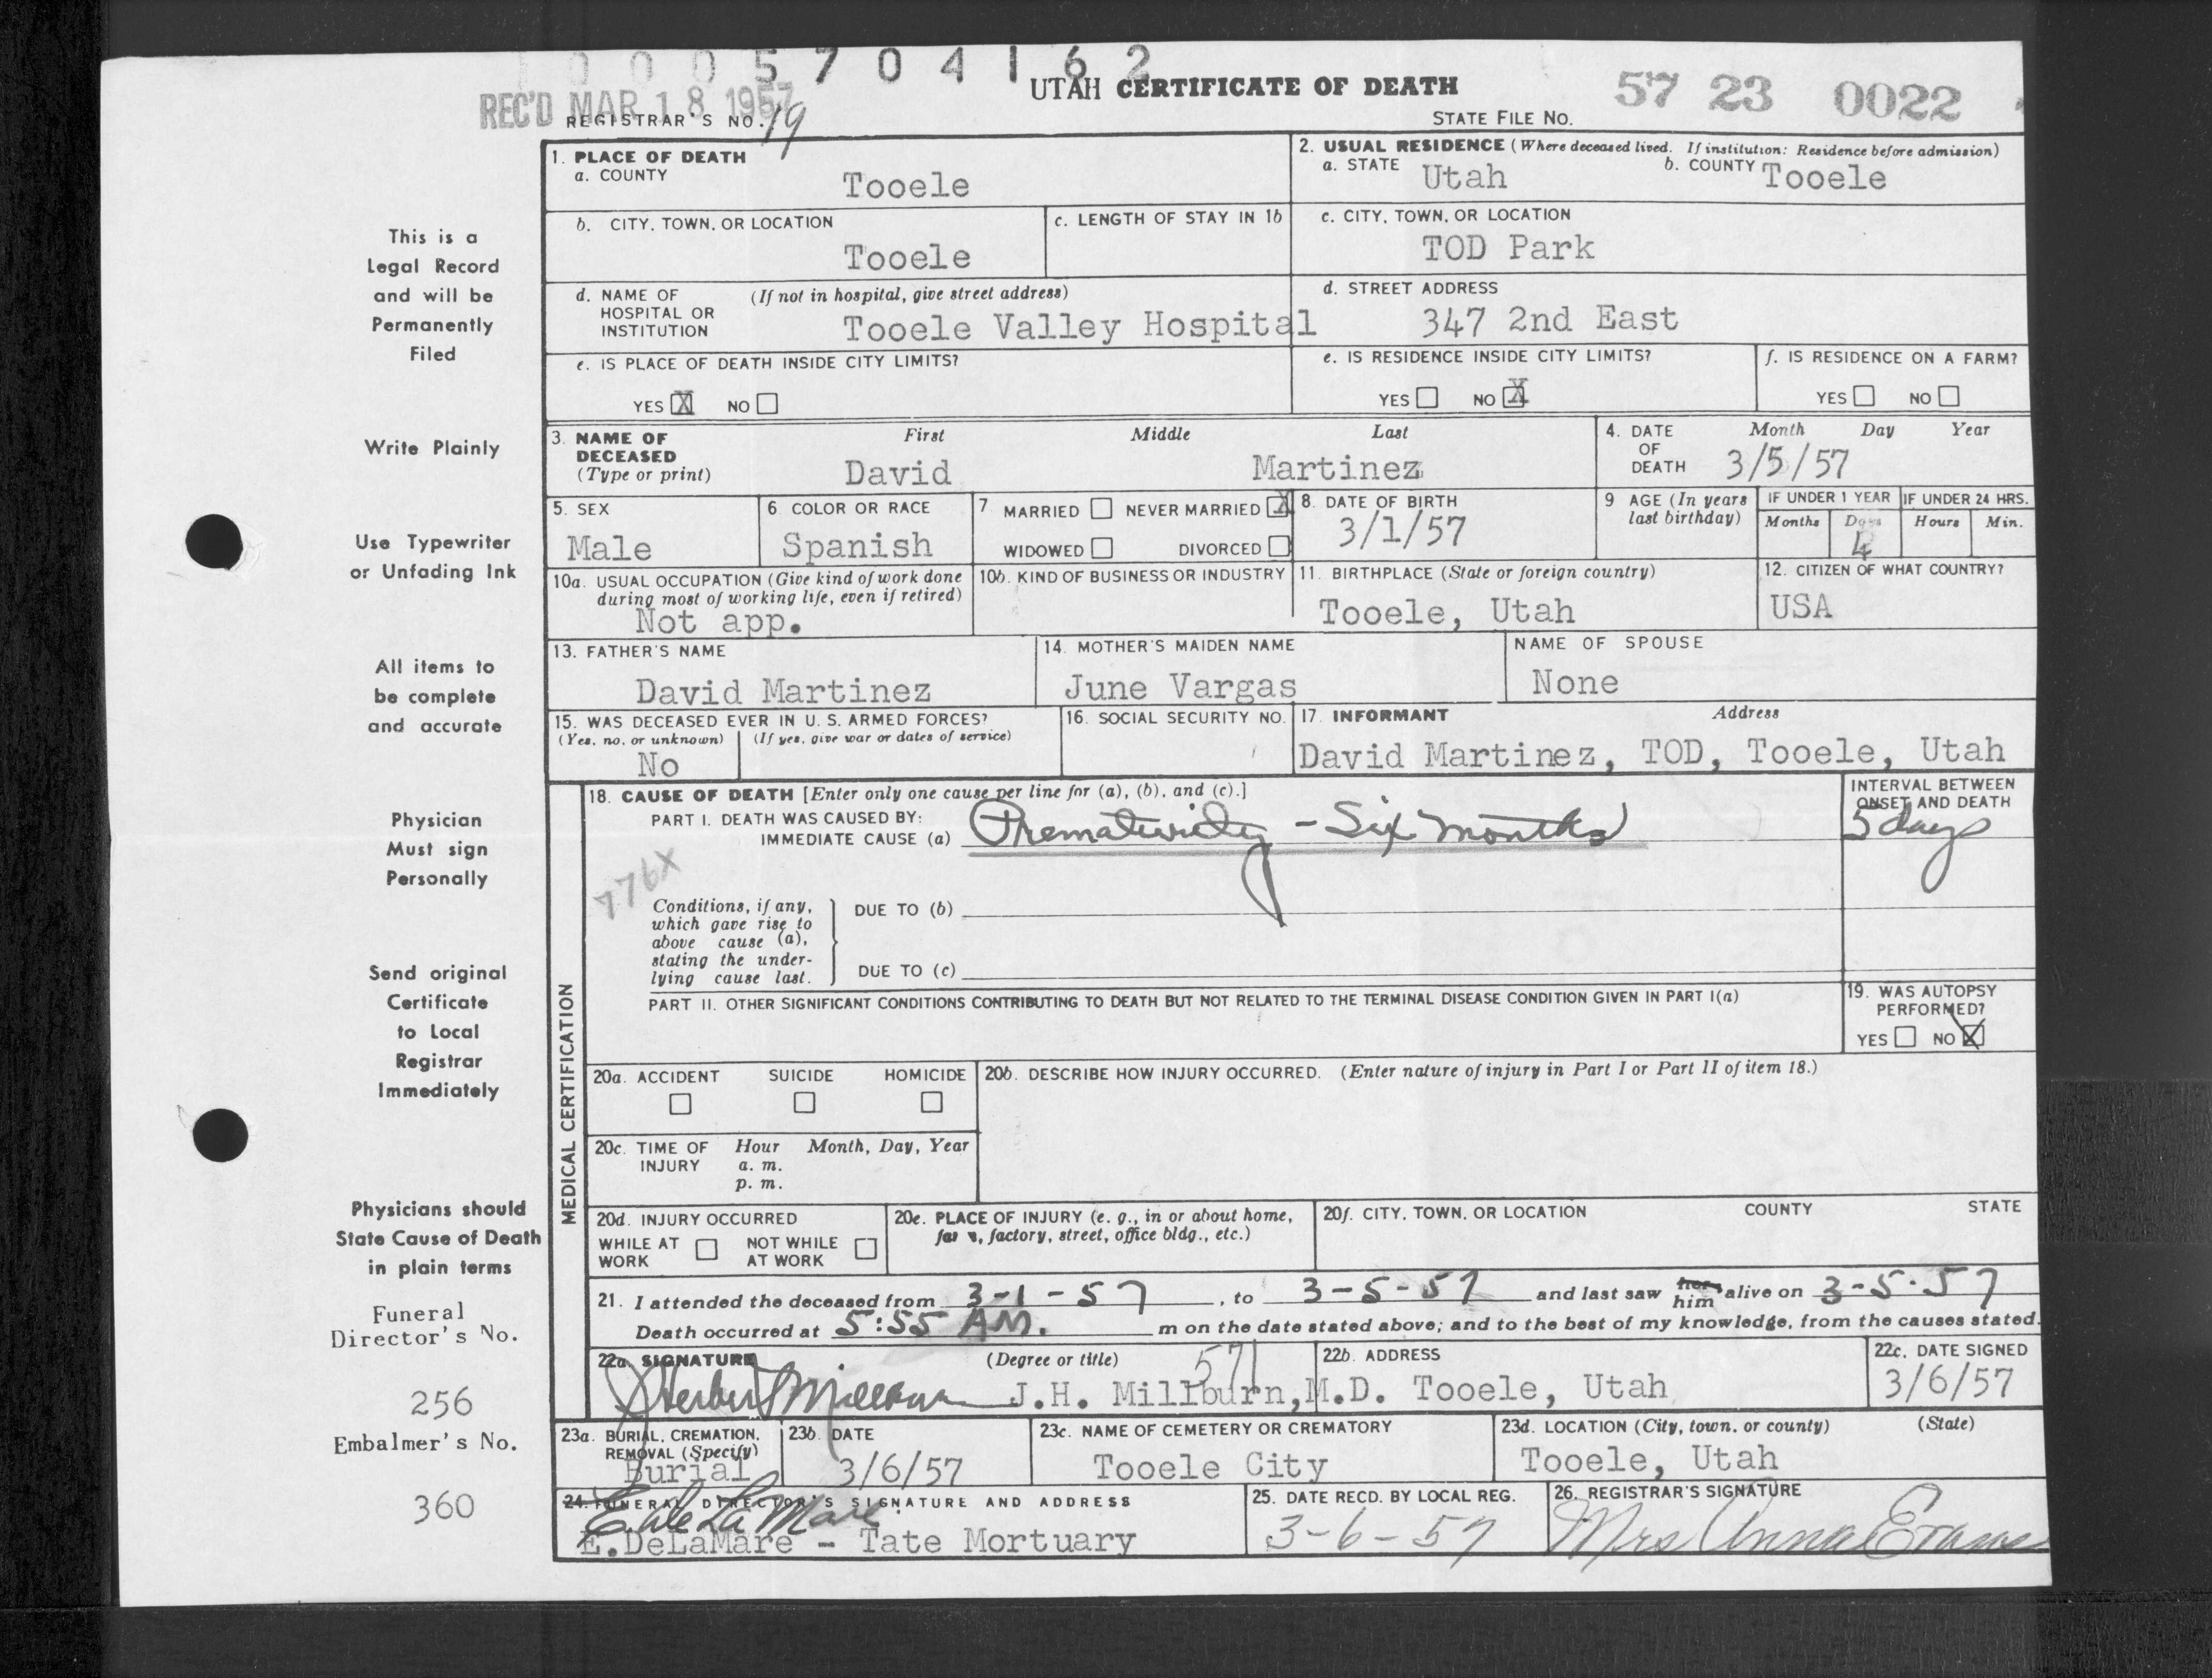 0005704162
REC'D MAR 18 1957
UTAH CERTIFICATE OF DEATH
57 23 0022
REGISTRAR'S NO. 19
STATE FILE NO.
1. PLACE OF DEATH
a. COUNTY
Tooele
2. USUAL RESIDENCE (Where deceased lived. If institution: Residence before admission)
a. STATE Utah
b. COUNTY Tooele
b. CITY, TOWN, OR LOCATION
Tooele
c. LENGTH OF STAY IN 1b
c. CITY, TOWN, OR LOCATION
TOD Park
d. NAME OF HOSPITAL OR INSTITUTION
(If not in hospital, give street address)
Tooele Valley Hospital
d. STREET ADDRESS
347 2nd East
e. IS PLACE OF DEATH INSIDE CITY LIMITS?
YES X NO
e. IS RESIDENCE INSIDE CITY LIMITS?
YES NO X
f. IS RESIDENCE ON A FARM?
YES NO
3. NAME OF DECEASED
(Type or print)
First Middle Last
David Martinez
4. DATE OF DEATH
Month Day Year
3/5/57
5. SEX
Male
6. COLOR OR RACE
Spanish
7. MARRIED NEVER MARRIED X
WIDOWED DIVORCED
8. DATE OF BIRTH
3/1/57
9 AGE (In years last birthday)
IF UNDER 1 YEAR
Months Days
4
IF UNDER 24 HRS.
Hours Min.
10a. USUAL OCCUPATION (Give kind of work done during most of working life, even if retired)
Not app.
10b. KIND OF BUSINESS OR INDUSTRY
11. BIRTHPLACE (State or foreign country)
Tooele, Utah
12. CITIZEN OF WHAT COUNTRY?
USA
13. FATHER'S NAME
David Martinez
14. MOTHER'S MAIDEN NAME
June Vargas
NAME OF SPOUSE
None
15. WAS DECEASED EVER IN U. S. ARMED FORCES?
(Yes, no, or unknown) (If yes, give war or dates of service)
No
16. SOCIAL SECURITY NO.
17. INFORMANT Address
David Martinez, TOD, Tooele, Utah
MEDICAL CERTIFICATION
18. CAUSE OF DEATH [Enter only one cause per line for (a), (b), and (c).]
PART I. DEATH WAS CAUSED BY:
IMMEDIATE CAUSE (a) Prematurity - Six months
INTERVAL BETWEEN ONSET AND DEATH
5 days
776X
Conditions, if any, which gave rise to above cause (a), stating the underlying cause last.
DUE TO (b)
DUE TO (c)
PART II. OTHER SIGNIFICANT CONDITIONS CONTRIBUTING TO DEATH BUT NOT RELATED TO THE TERMINAL DISEASE CONDITION GIVEN IN PART I(a)
19. WAS AUTOPSY PERFORMED?
YES NO X
20a. ACCIDENT SUICIDE HOMICIDE
20b. DESCRIBE HOW INJURY OCCURRED. (Enter nature of injury in Part I or Part II of item 18.)
20c. TIME OF INJURY
Hour Month, Day, Year
a. m.
p. m.
20d. INJURY OCCURRED
WHILE AT WORK NOT WHILE AT WORK
20e. PLACE OF INJURY (e. g., in or about home, farm, factory, street, office bldg., etc.)
20f. CITY, TOWN, OR LOCATION COUNTY STATE
21. I attended the deceased from 3-1-57, to 3-5-57 and last saw her him alive on 3-5-57
Death occurred at 5:55 AM. m on the date stated above; and to the best of my knowledge, from the causes stated.
22a SIGNATURE (Degree or title) 571
J Herbert Millburn J.H. Millburn, M.D.
22b. ADDRESS
Tooele, Utah
22c. DATE SIGNED
3/6/57
23a. BURIAL, CREMATION, REMOVAL (Specify)
Burial
23b. DATE
3/6/57
23c. NAME OF CEMETERY OR CREMATORY
Tooele City
23d. LOCATION (City, town, or county) (State)
Tooele, Utah
24. FUNERAL DIRECTOR'S SIGNATURE AND ADDRESS
E. DeLaMare
E.DeLaMare - Tate Mortuary
25. DATE RECD. BY LOCAL REG.
3-6-57
26. REGISTRAR'S SIGNATURE
Mrs Anna Evans
This is a
Legal Record
and will be
Permanently
Filed
Write Plainly
Use Typewriter
or Unfading Ink
All items to
be complete
and accurate
Physician
Must sign
Personally
Send original
Certificate
to Local
Registrar
Immediately
Physicians should
State Cause of Death
in plain terms
Funeral
Director's No.
256
Embalmer's No.
360